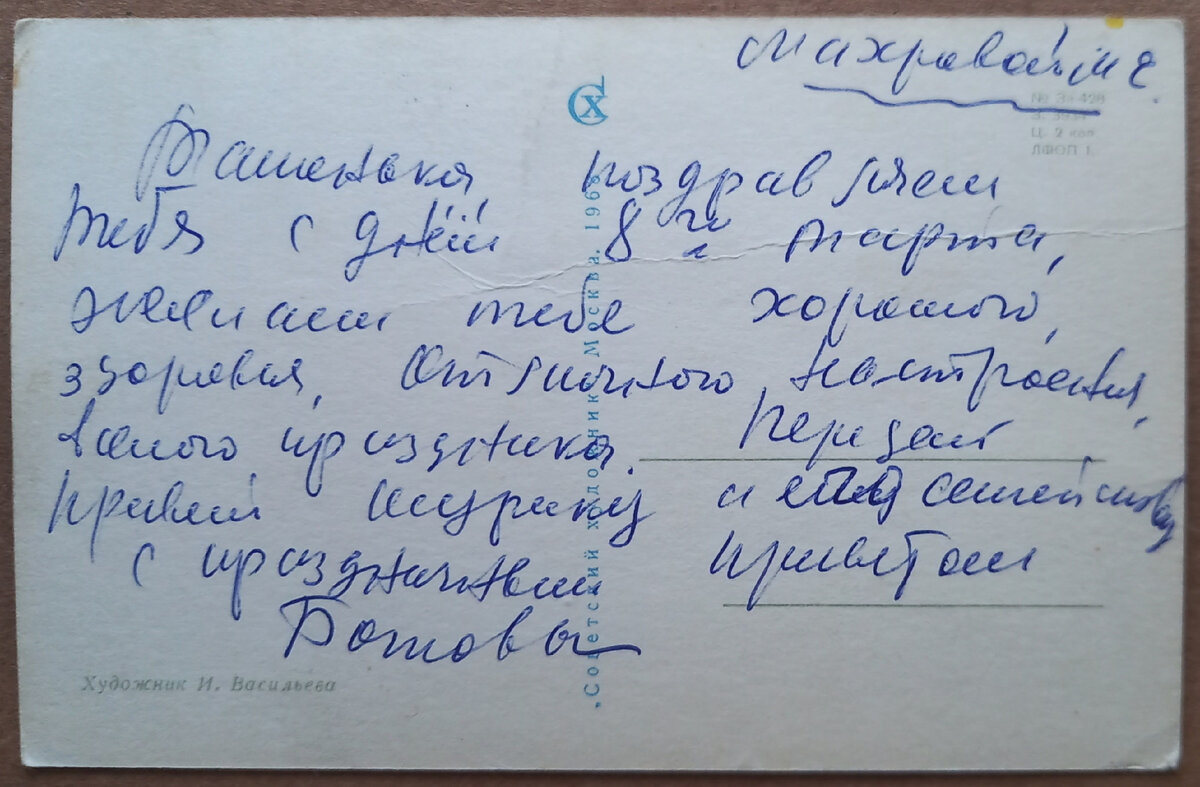 Махровой М Е.
СХ
№ 3-426
Ц. 2 коп.
ЛФОП 1.
поздравляем
тебя с днём 8 марта,
желаем тебе хорошего,
здоровья, отличного, настроения,
праздника. Передай
привет Шурику и семейству
с праздничным приветом
Ботовы
Художник И. Васильева
„Советский художник" Москва. 1968